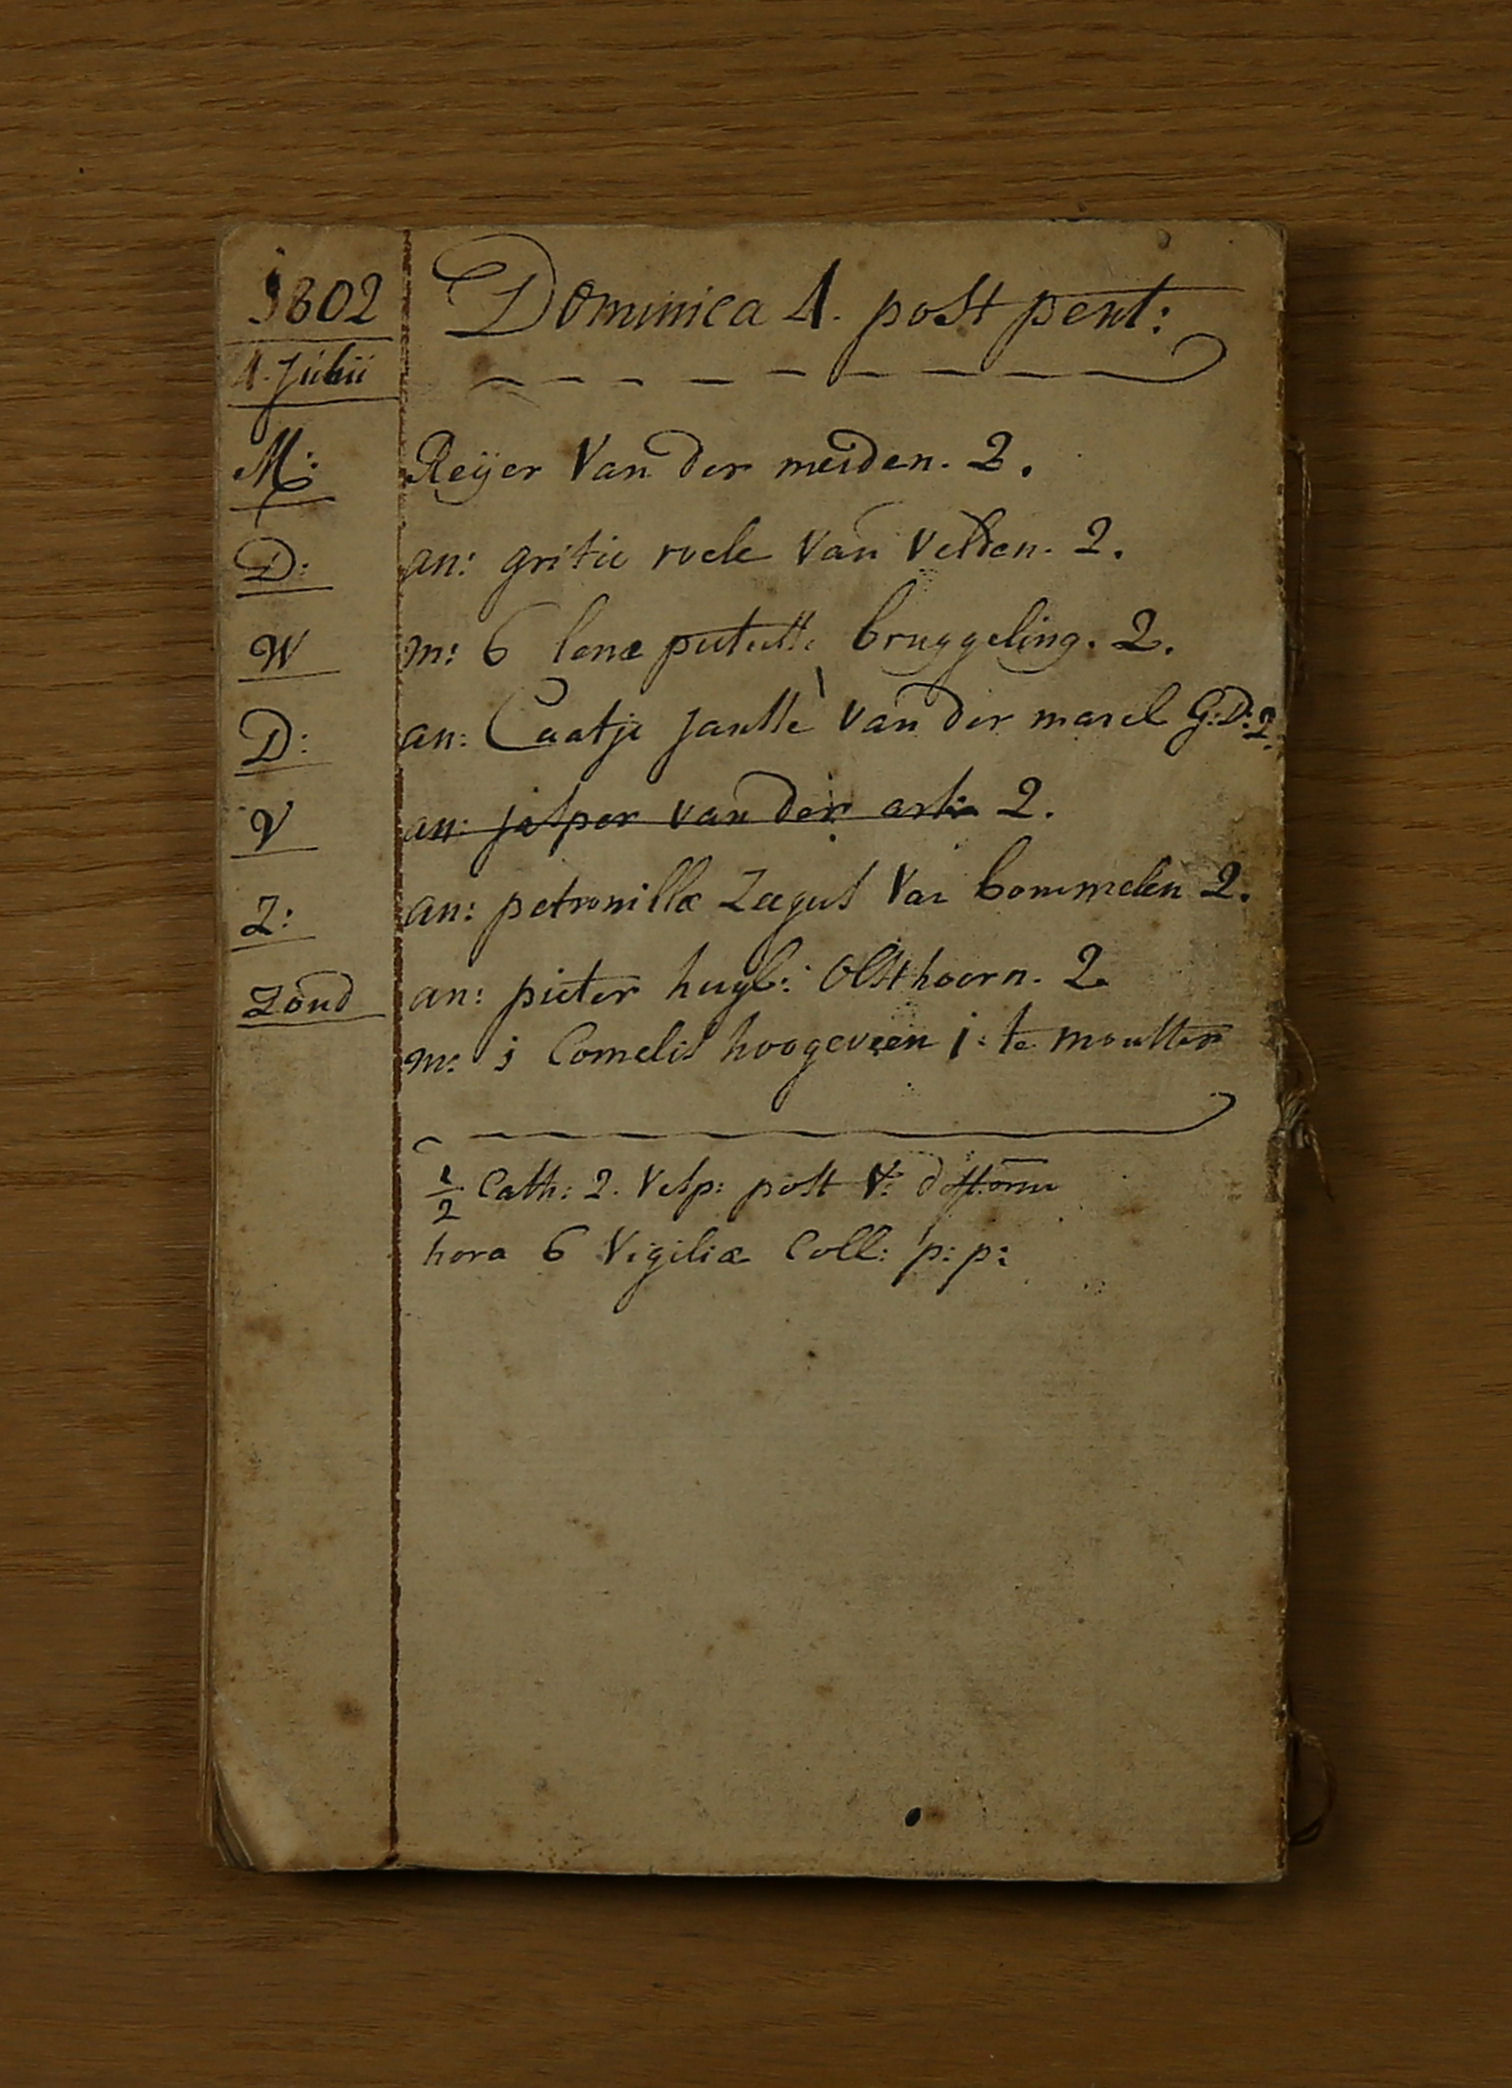 1802 Dominica 4. post pent:
4. Julii
M: Reijer Van der meiden. 2.
D: an: gritie roele Van Velden. 2.
W m: 6 lenæ bruggeling. 2.
D: an: Caatje Van der marel G:D: 2.
V an: jesper van der 2.
Z: an: petronillæ Zegers Van bommelen 2.
Zond an: pieter huyb: Olsthoorn. 2
m: 1 Cornelis hoogeveen j: te monster
1/2 Cath: 2. Vesp: post V:
hora 6 Vigiliæ Coll: p: p: